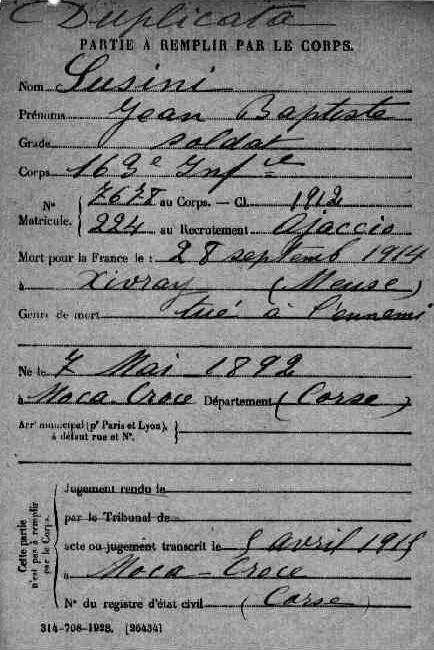 Duplicata
PARTIE À REMPLIR PAR LE CORPS.
Nom Susini
Prénoms Jean Baptiste
Grade soldat
Corps 163e Infie
N° 7678 au Corps. — Cl. 1912
Matricule. 224 au Recrutement Ajaccio
Mort pour la France le : 28 septemb 1914
à Xivray (Meuse)
Genre de mort tué à l'ennemi
Né le 7 Mai 1892
à Moca-Croce Département (Corse)
Arrt municipal (pr Paris et Lyon),
à défaut rue et N°.
Cette partie
n'est pas à remplir
par le Corps.
Jugement rendu le
par le Tribunal de
acte ou jugement transcrit le 5 avril 1915
à Moca-Croce
N° du registre d'état civil (Corse)
314-708-1928. [26434]